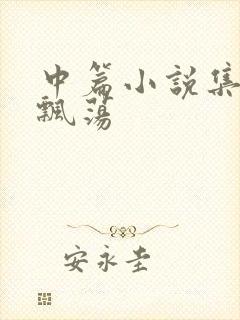 中篇小説集
飄蕩
安永圭